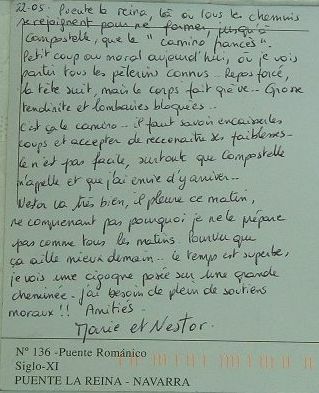 22-05. Puente la reina, là où tous les chemins
se rejoignent pour ne former, jusqu'à
Compostelle, que le "camino francés".
Petit coup au moral aujourd'hui, où je vois
partir tous les pèlerins connus.. Repos forcé,
la tête suit, mais le corps fait grève.. Grosse
tendinite et lombaires bloquées..
C'est ça le camino.. il faut savoir encaisser les
coups et accepter de reconnaitre ses faiblesses-
Ce n'est pas facile, surtout que Compostelle
m'appelle et que j'ai envie d'y arriver..
Nestor va très bien, il pleure ce matin,
ne comprenant pas pourquoi je ne le prépare
pas comme tous les matins. Pourvu que
ça aille mieux demain.. le temps est superbe,
je vois une cigogne posée sur une grande
cheminée - j'ai besoin de plein de soutiens
moraux !! Amitiés.
Marie et Nestor.
Nº 136 -Puente Románico
Siglo-XI
PUENTE LA REINA - NAVARRA